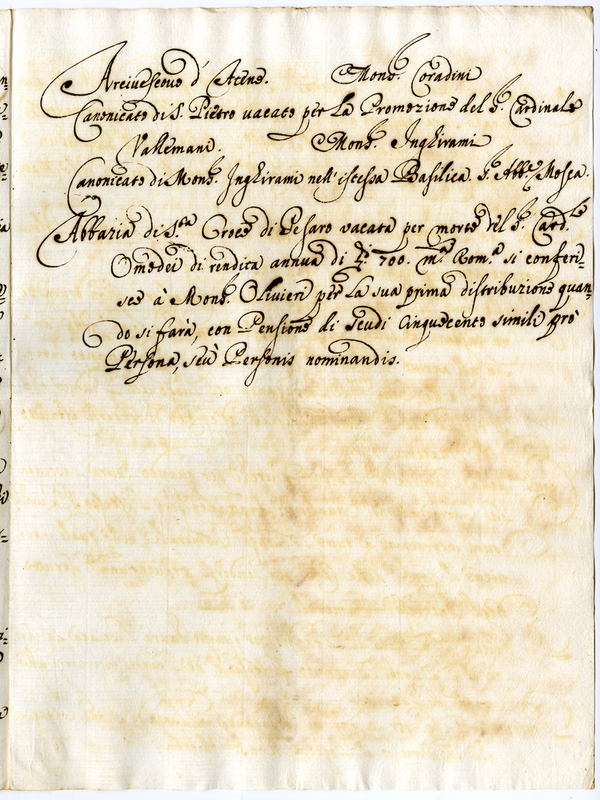 Arcivescovo d'Atene. Mons.r Coradini
Canonicato di S. Pietro vacato per la Promozione del S.r Cardinale
Vallemani. Mons.r Inghirami
Canonicato di Mons.r Inghirami nell'istessa Basilica. S.r Abb.e Mosca.
Abbazia di S.ta Croce di Pesaro vacata per morte del S.r Card.le
Omodei di rendita annua di 700. m.ta Rom.a si conferi=
sce à Mons.r Olivieri per la sua prima distribuzione quan=
do si farà, con Pensione di scudi cinquecento simili prò
Persona, seù Personis nominandis.